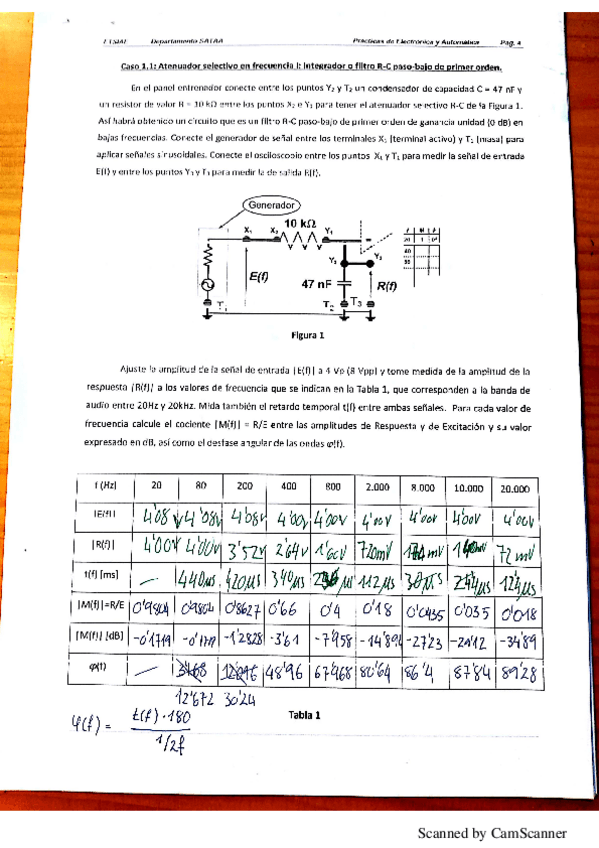 ETSIAE Departamento SATAA Prácticas de Electrónica y Automática Pág. 4
Caso 1.1: Atenuador selectivo en frecuencia I: Integrador o filtro R-C paso-bajo de primer orden.
En el panel entrenador conecte entre los puntos Y₂ y T₂ un condensador de capacidad C = 47 nF y
un resistor de valor R = 10 kΩ entre los puntos X₂ e Y₁ para tener el atenuador selectivo R-C de la Figura 1.
Así habrá obtenido un circuito que es un filtro R-C paso-bajo de primer orden de ganancia unidad (0 dB) en
bajas frecuencias. Conecte el generador de señal entre los terminales X₁ (terminal activo) y T₁ (masa) para
aplicar señales sinusoidales. Conecte el osciloscopio entre los puntos X₁ y T₁ para medir la señal de entrada
E(f) y entre los puntos Y₃ y T₃ para medir la de salida R(f).
Generador
10 kΩ
X₁ X₂ Y₁
Y₂ Y₃
E(f) 47 nF R(f)
T₁ T₂ T₃
20 1 0º
40
Figura 1
Ajuste la amplitud de la señal de entrada |E(f)| a 4 Vp (8 Vpp) y tome medida de la amplitud de la
respuesta |R(f)| a los valores de frecuencia que se indican en la Tabla 1, que corresponden a la banda de
audio entre 20Hz y 20kHz. Mida también el retardo temporal t(f) entre ambas señales. Para cada valor de
frecuencia calcule el cociente |M(f)| = R/E entre las amplitudes de Respuesta y de Excitación y su valor
expresado en dB, así como el desfase angular de las ondas φ(f).
f (Hz) 20 80 200 400 800 2.000 8.000 10.000 20.000
|E(f)| 4'08 V 4'08V 4'08V 4'00V 4'00V 4'00V 4'00V 4'00V 4'00V
|R(f)| 4'00V 4'00V 3'52V 2'64V 1'60V 720mV mV mV 72mV
t(f) [ms] — 440μs 420μs 340μs μs 112μs 30μs 24'4μs 12'4μs
|M(f)|=R/E 0'9804 0'9804 0'8627 0'66 0'4 0'18 0'0435 0'035 0'018
|M(f)| [dB] -0'1719 -0'1719 -1'2828 -3'61 -7'958 -14'894 -27'23 -29'12 -34'89
φ(f) — 48'96 67'968 80'64 86'4 87'84 89'28
12'672 30'24
Tabla 1
φ(f) = t(f)·180
1/2f
Scanned by CamScanner